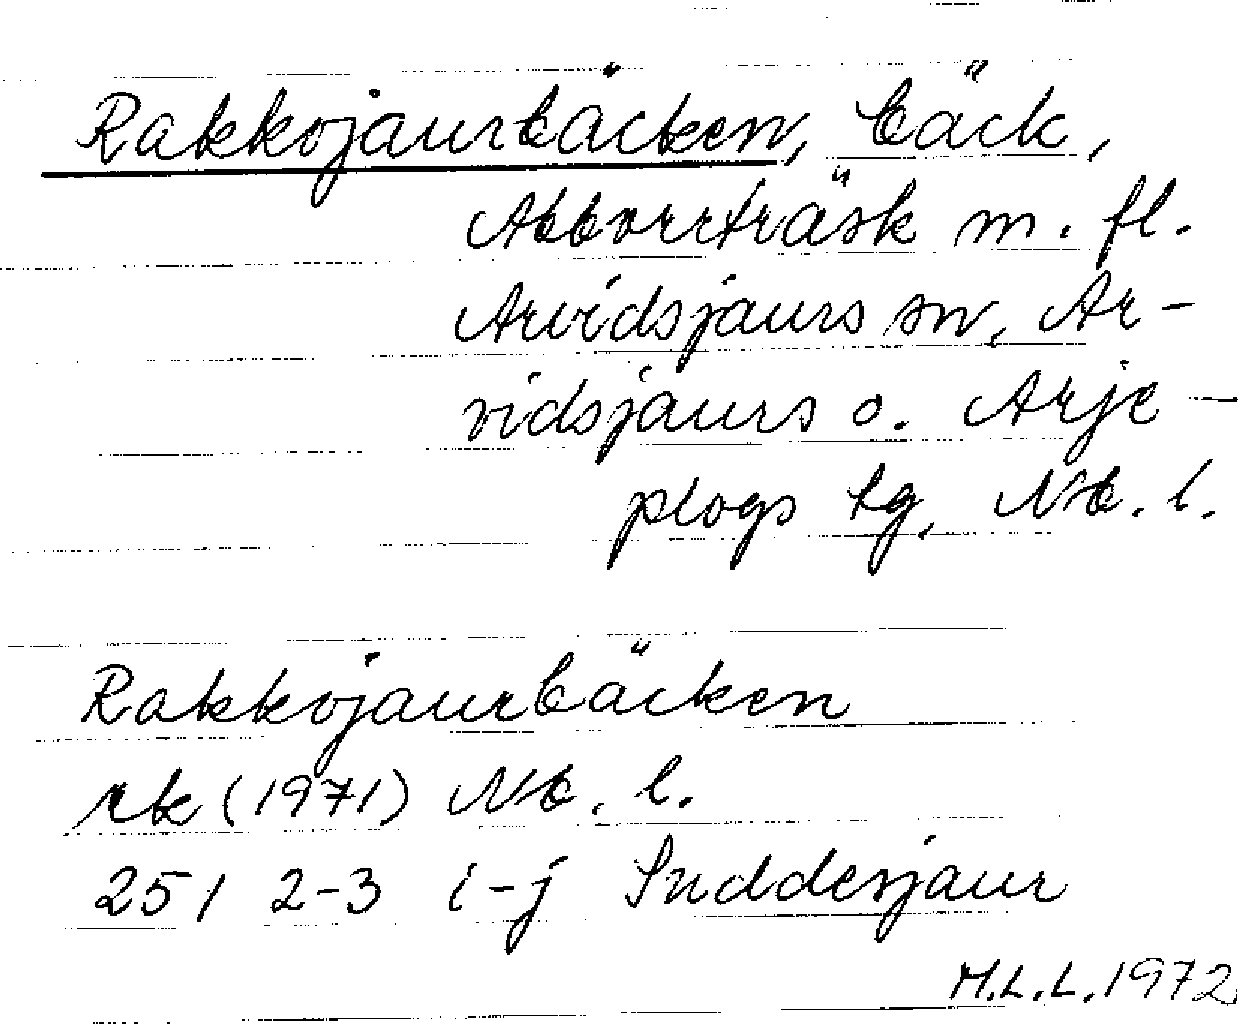 Rakkojaurbäcken, bäck,
Abborrträsk m. fl.
Arvidsjaurs sn, Ar-
vidsjaurs o. Arje-
plogs tg, Nb. l.
Rakkojaurbäcken
rtk (1971) Nb. l.
251 2-3 i-j Suddesjaur
M.L.L. 1972